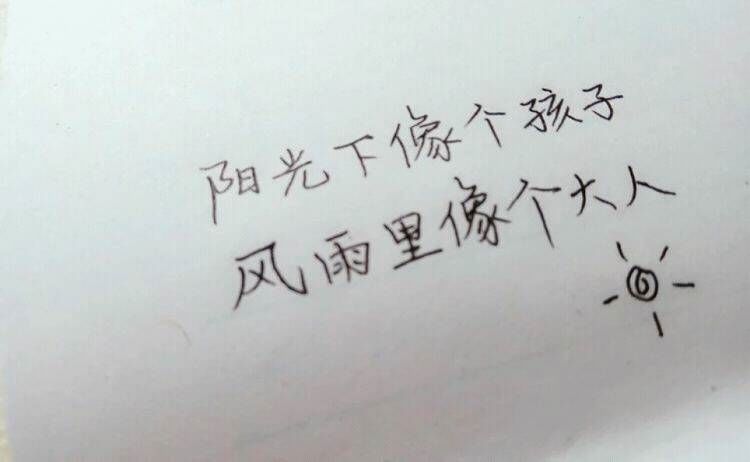 阳光下像个孩子
风雨里像个大人